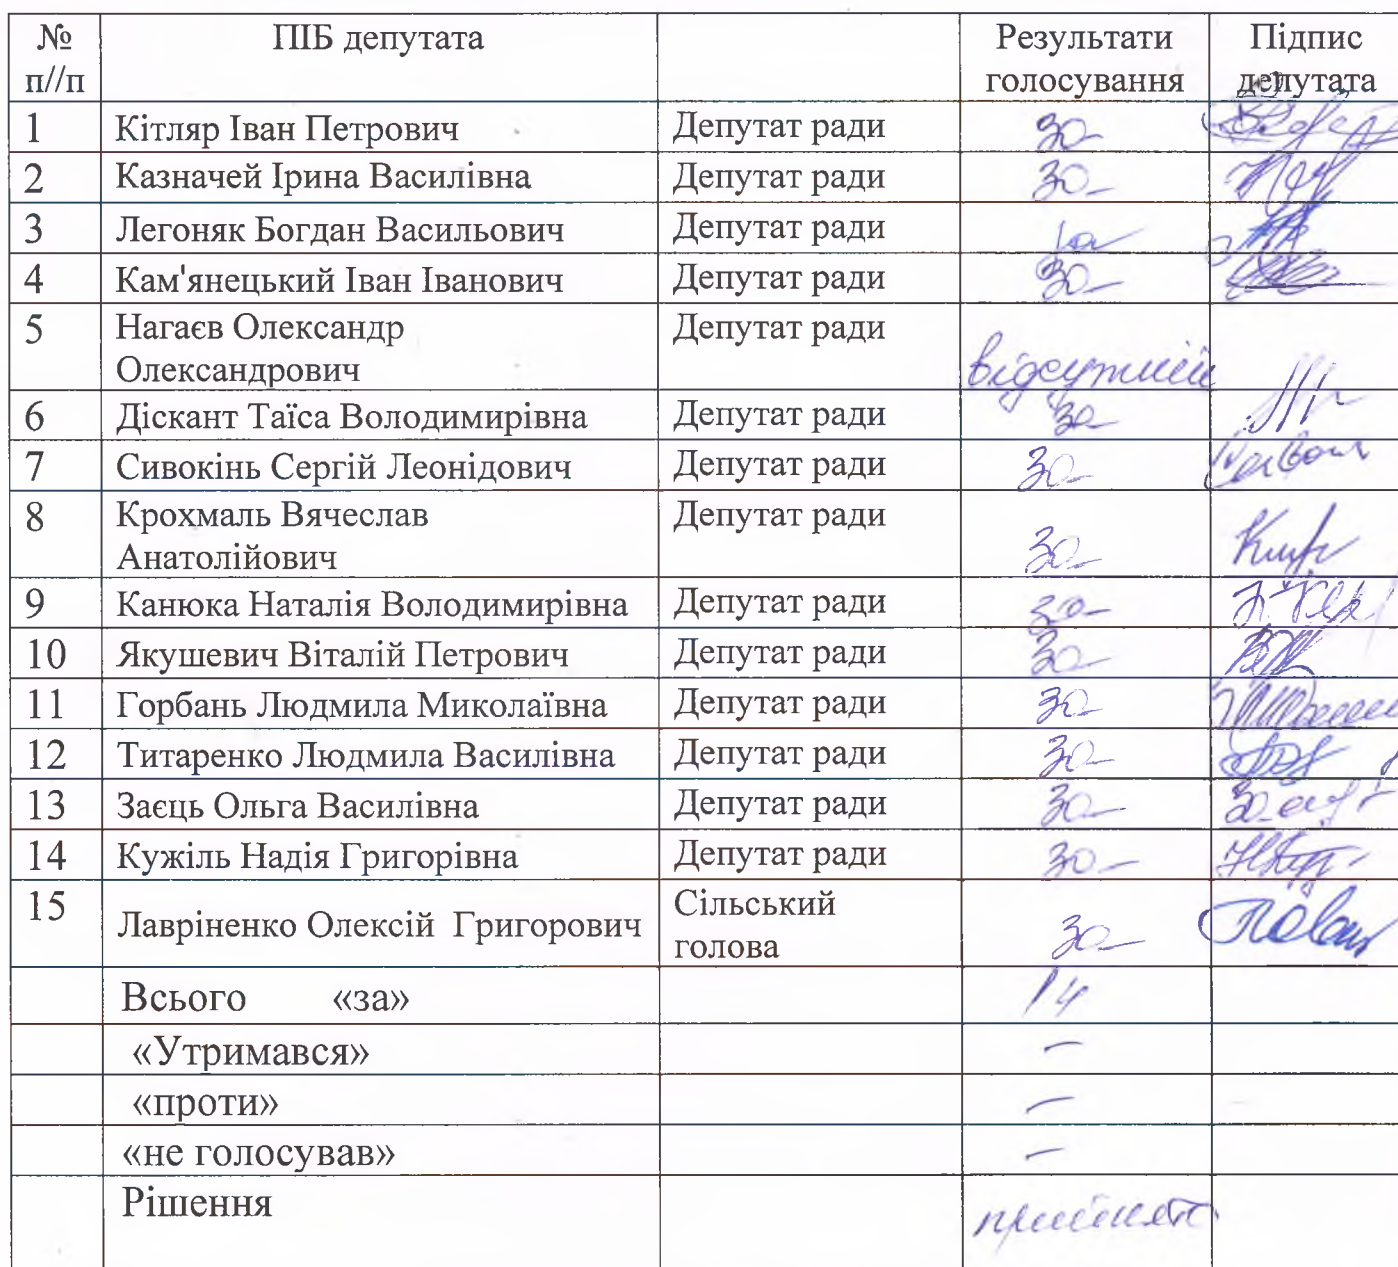 № п//п ПІБ депутата Результати голосування Підпис депутата
1 Кітляр Іван Петрович Депутат ради за
2 Казначей Ірина Василівна Депутат ради за
3 Легоняк Богдан Васильович Депутат ради за
4 Кам'янецький Іван Іванович Депутат ради за
5 Нагаєв Олександр Олександрович Депутат ради відсутній
6 Діскант Таїса Володимирівна Депутат ради за
7 Сивокінь Сергій Леонідович Депутат ради за
8 Крохмаль Вячеслав Анатолійович Депутат ради за
9 Канюка Наталія Володимирівна Депутат ради за
10 Якушевич Віталій Петрович Депутат ради за
11 Горбань Людмила Миколаївна Депутат ради за
12 Титаренко Людмила Василівна Депутат ради за
13 Заєць Ольга Василівна Депутат ради за
14 Кужіль Надія Григорівна Депутат ради за
15 Лавріненко Олексій Григорович Сільський голова за
Всього «за» 14
«Утримався» –
«проти» –
«не голосував» –
Рішення